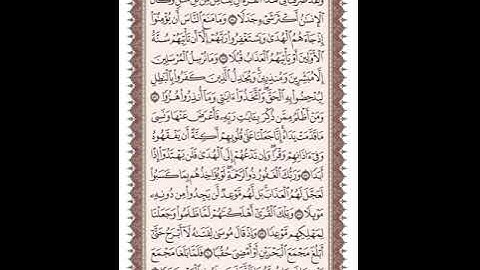 وَلَقَدْ صَرَّفْنَا فِي هَٰذَا الْقُرْآنِ لِلنَّاسِ مِن كُلِّ مَثَلٍ وَكَانَ
الْإِنسَانُ أَكْثَرَ شَيْءٍ جَدَلًا ۝ وَمَا مَنَعَ النَّاسَ أَن يُؤْمِنُوا
إِذْ جَاءَهُمُ الْهُدَىٰ وَيَسْتَغْفِرُوا رَبَّهُمْ إِلَّا أَن تَأْتِيَهُمْ سُنَّةُ
الْأَوَّلِينَ أَوْ يَأْتِيَهُمُ الْعَذَابُ قُبُلًا ۝ وَمَا نُرْسِلُ الْمُرْسَلِينَ
إِلَّا مُبَشِّرِينَ وَمُنذِرِينَ وَيُجَادِلُ الَّذِينَ كَفَرُوا بِالْبَاطِلِ
لِيُدْحِضُوا بِهِ الْحَقَّ وَاتَّخَذُوا آيَاتِي وَمَا أُنذِرُوا هُزُوًا ۝
وَمَنْ أَظْلَمُ مِمَّن ذُكِّرَ بِآيَاتِ رَبِّهِ فَأَعْرَضَ عَنْهَا وَنَسِيَ
مَا قَدَّمَتْ يَدَاهُ إِنَّا جَعَلْنَا عَلَىٰ قُلُوبِهِمْ أَكِنَّةً أَن يَفْقَهُوهُ
وَفِي آذَانِهِمْ وَقْرًا وَإِن تَدْعُهُمْ إِلَى الْهُدَىٰ فَلَن يَهْتَدُوا إِذًا
أَبَدًا ۝ وَرَبُّكَ الْغَفُورُ ذُو الرَّحْمَةِ لَوْ يُؤَاخِذُهُم بِمَا كَسَبُوا
لَعَجَّلَ لَهُمُ الْعَذَابَ بَل لَّهُم مَّوْعِدٌ لَّن يَجِدُوا مِن دُونِهِ
مَوْئِلًا ۝ وَتِلْكَ الْقُرَىٰ أَهْلَكْنَاهُمْ لَمَّا ظَلَمُوا وَجَعَلْنَا
لِمَهْلِكِهِم مَّوْعِدًا ۝ وَإِذْ قَالَ مُوسَىٰ لِفَتَاهُ لَا أَبْرَحُ حَتَّىٰ
أَبْلُغَ مَجْمَعَ الْبَحْرَيْنِ أَوْ أَمْضِيَ حُقُبًا ۝ فَلَمَّا بَلَغَا مَجْمَعَ